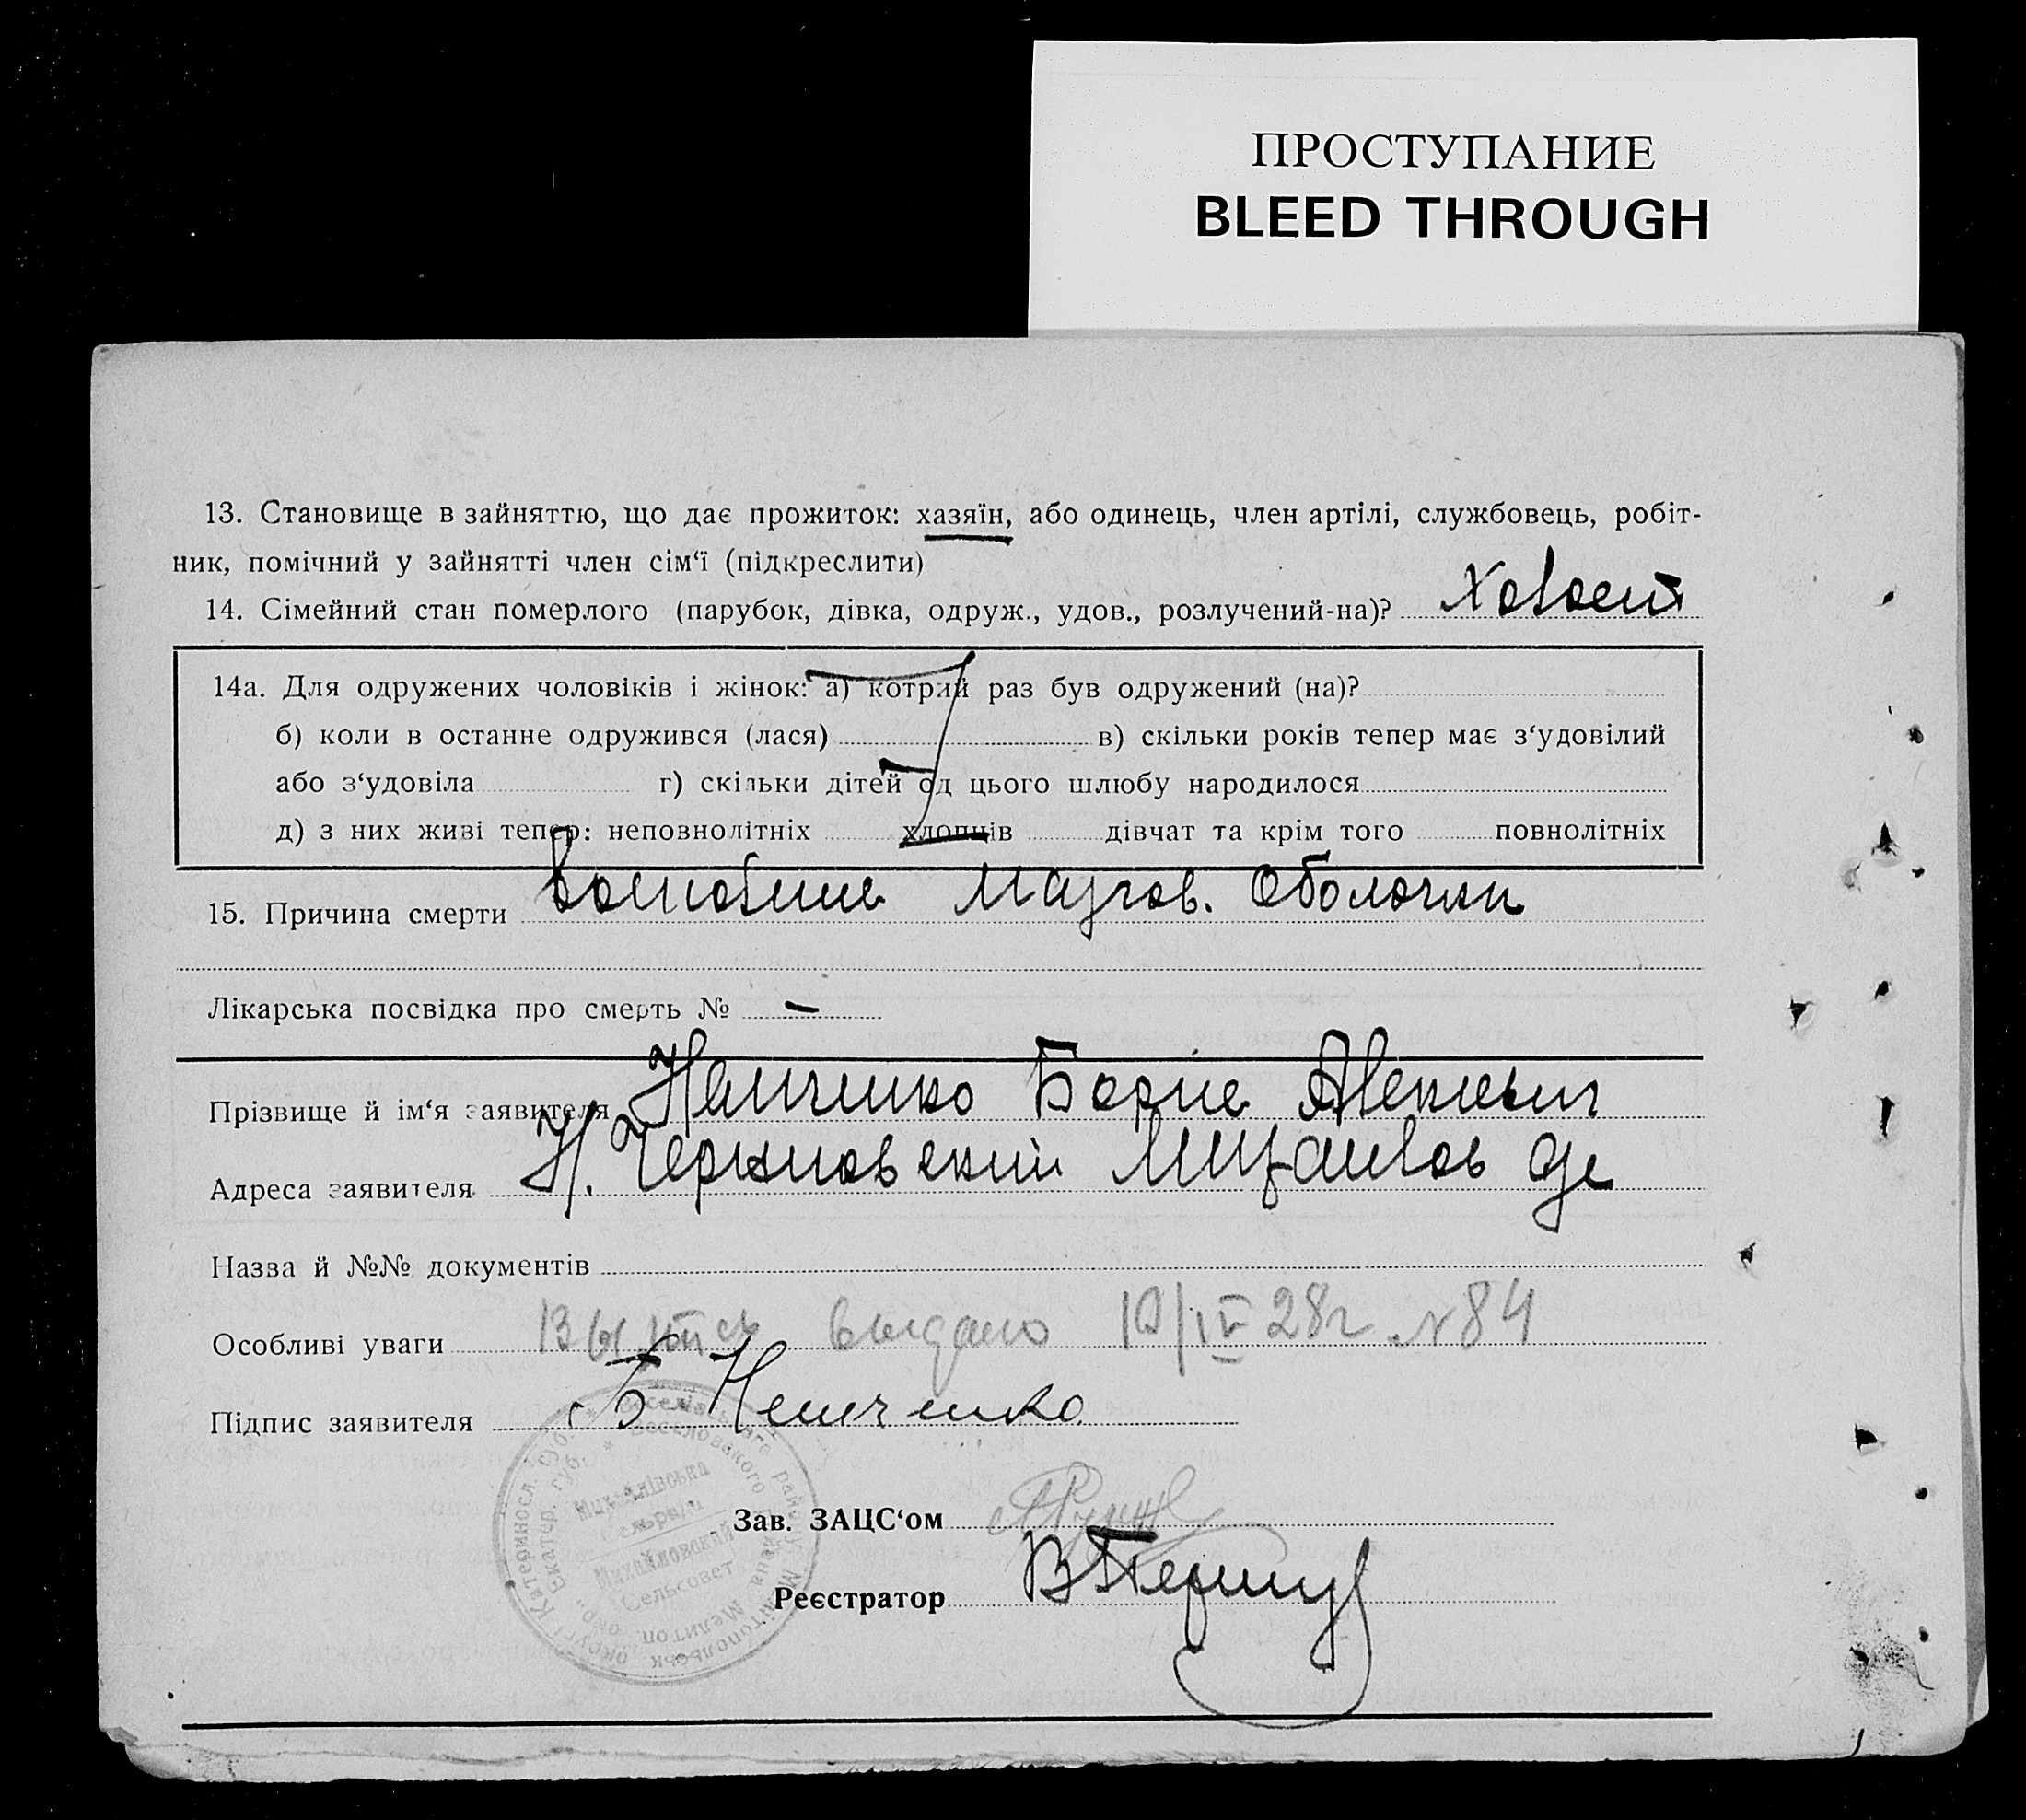 ПРОСТУПАНИЕ
BLEED THROUGH
13. Становище в зайняттю, що дає прожиток: хазяїн, або одинець, член артілі, службовець, робіт-
ник, помічний у зайнятті член сім‘ї (підкреслити)
14. Сімейний стан померлого (парубок, дівка, одруж., удов., розлучений-на)? Холост
14а. Для одружених чоловіків і жінок: а) котрий раз був одружений (на)?
б) коли в останне одружився (лася) в) скільки років тепер має з‘удовілий
або з‘удовіла г) скільки дітей од цього шлюбу народилося
д) з них живі тепер: неповнолітніх хлопців дівчат та крім того повнолітніх
15. Причина смерти Мозгов. Оболочки
Лікарська посвідка про смерть № —
Прізвище й ім‘я заявителя Немченко Борис
Адреса заявителя Н.
Назва й №№ документів
Особливі уваги Выпись выдано 10/IV 28г №84
Підпис заявителя Б Немченко
Зав. ЗАЦС‘ом
Реєстратор
Михайлівська
Сельрада
Михайловский
Сельсовет